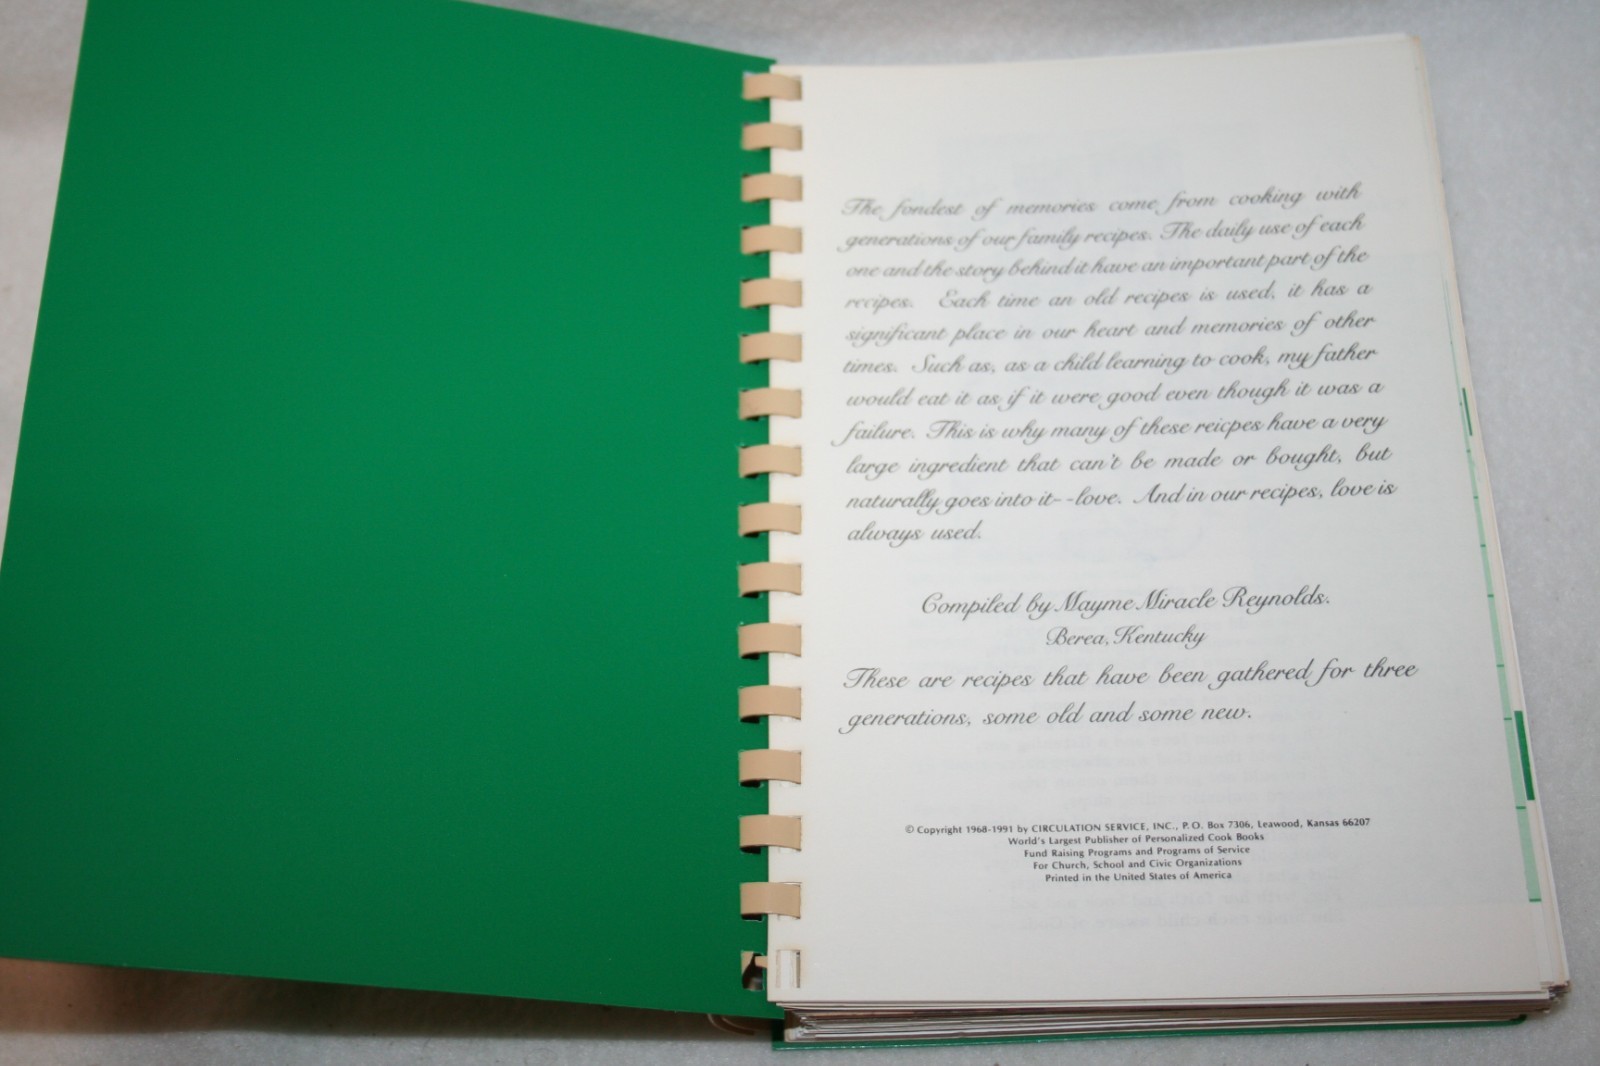 The fondest of memories come from cooking with
generations of our family recipes. The daily use of each
one and the story behind it have an important part of the
recipes. Each time an old recipes is used, it has a
significant place in our heart and memories of other
times. Such as, as a child learning to cook, my father
would eat it as if it were good even though it was a
failure. This is why many of these reicpes have a very
large ingredient that can't be made or bought, but
naturally goes into it--love. And in our recipes, love is
always used.
Compiled by Mayme Miracle Reynolds.
Berea, Kentucky
These are recipes that have been gathered for three
generations, some old and some new.
© Copyright 1968-1991 by CIRCULATION SERVICE, INC., P. O. Box 7306, Leawood, Kansas 66207
World's Largest Publisher of Personalized Cook Books
Fund Raising Programs and Programs of Service
For Church, School and Civic Organizations
Printed in the United States of America